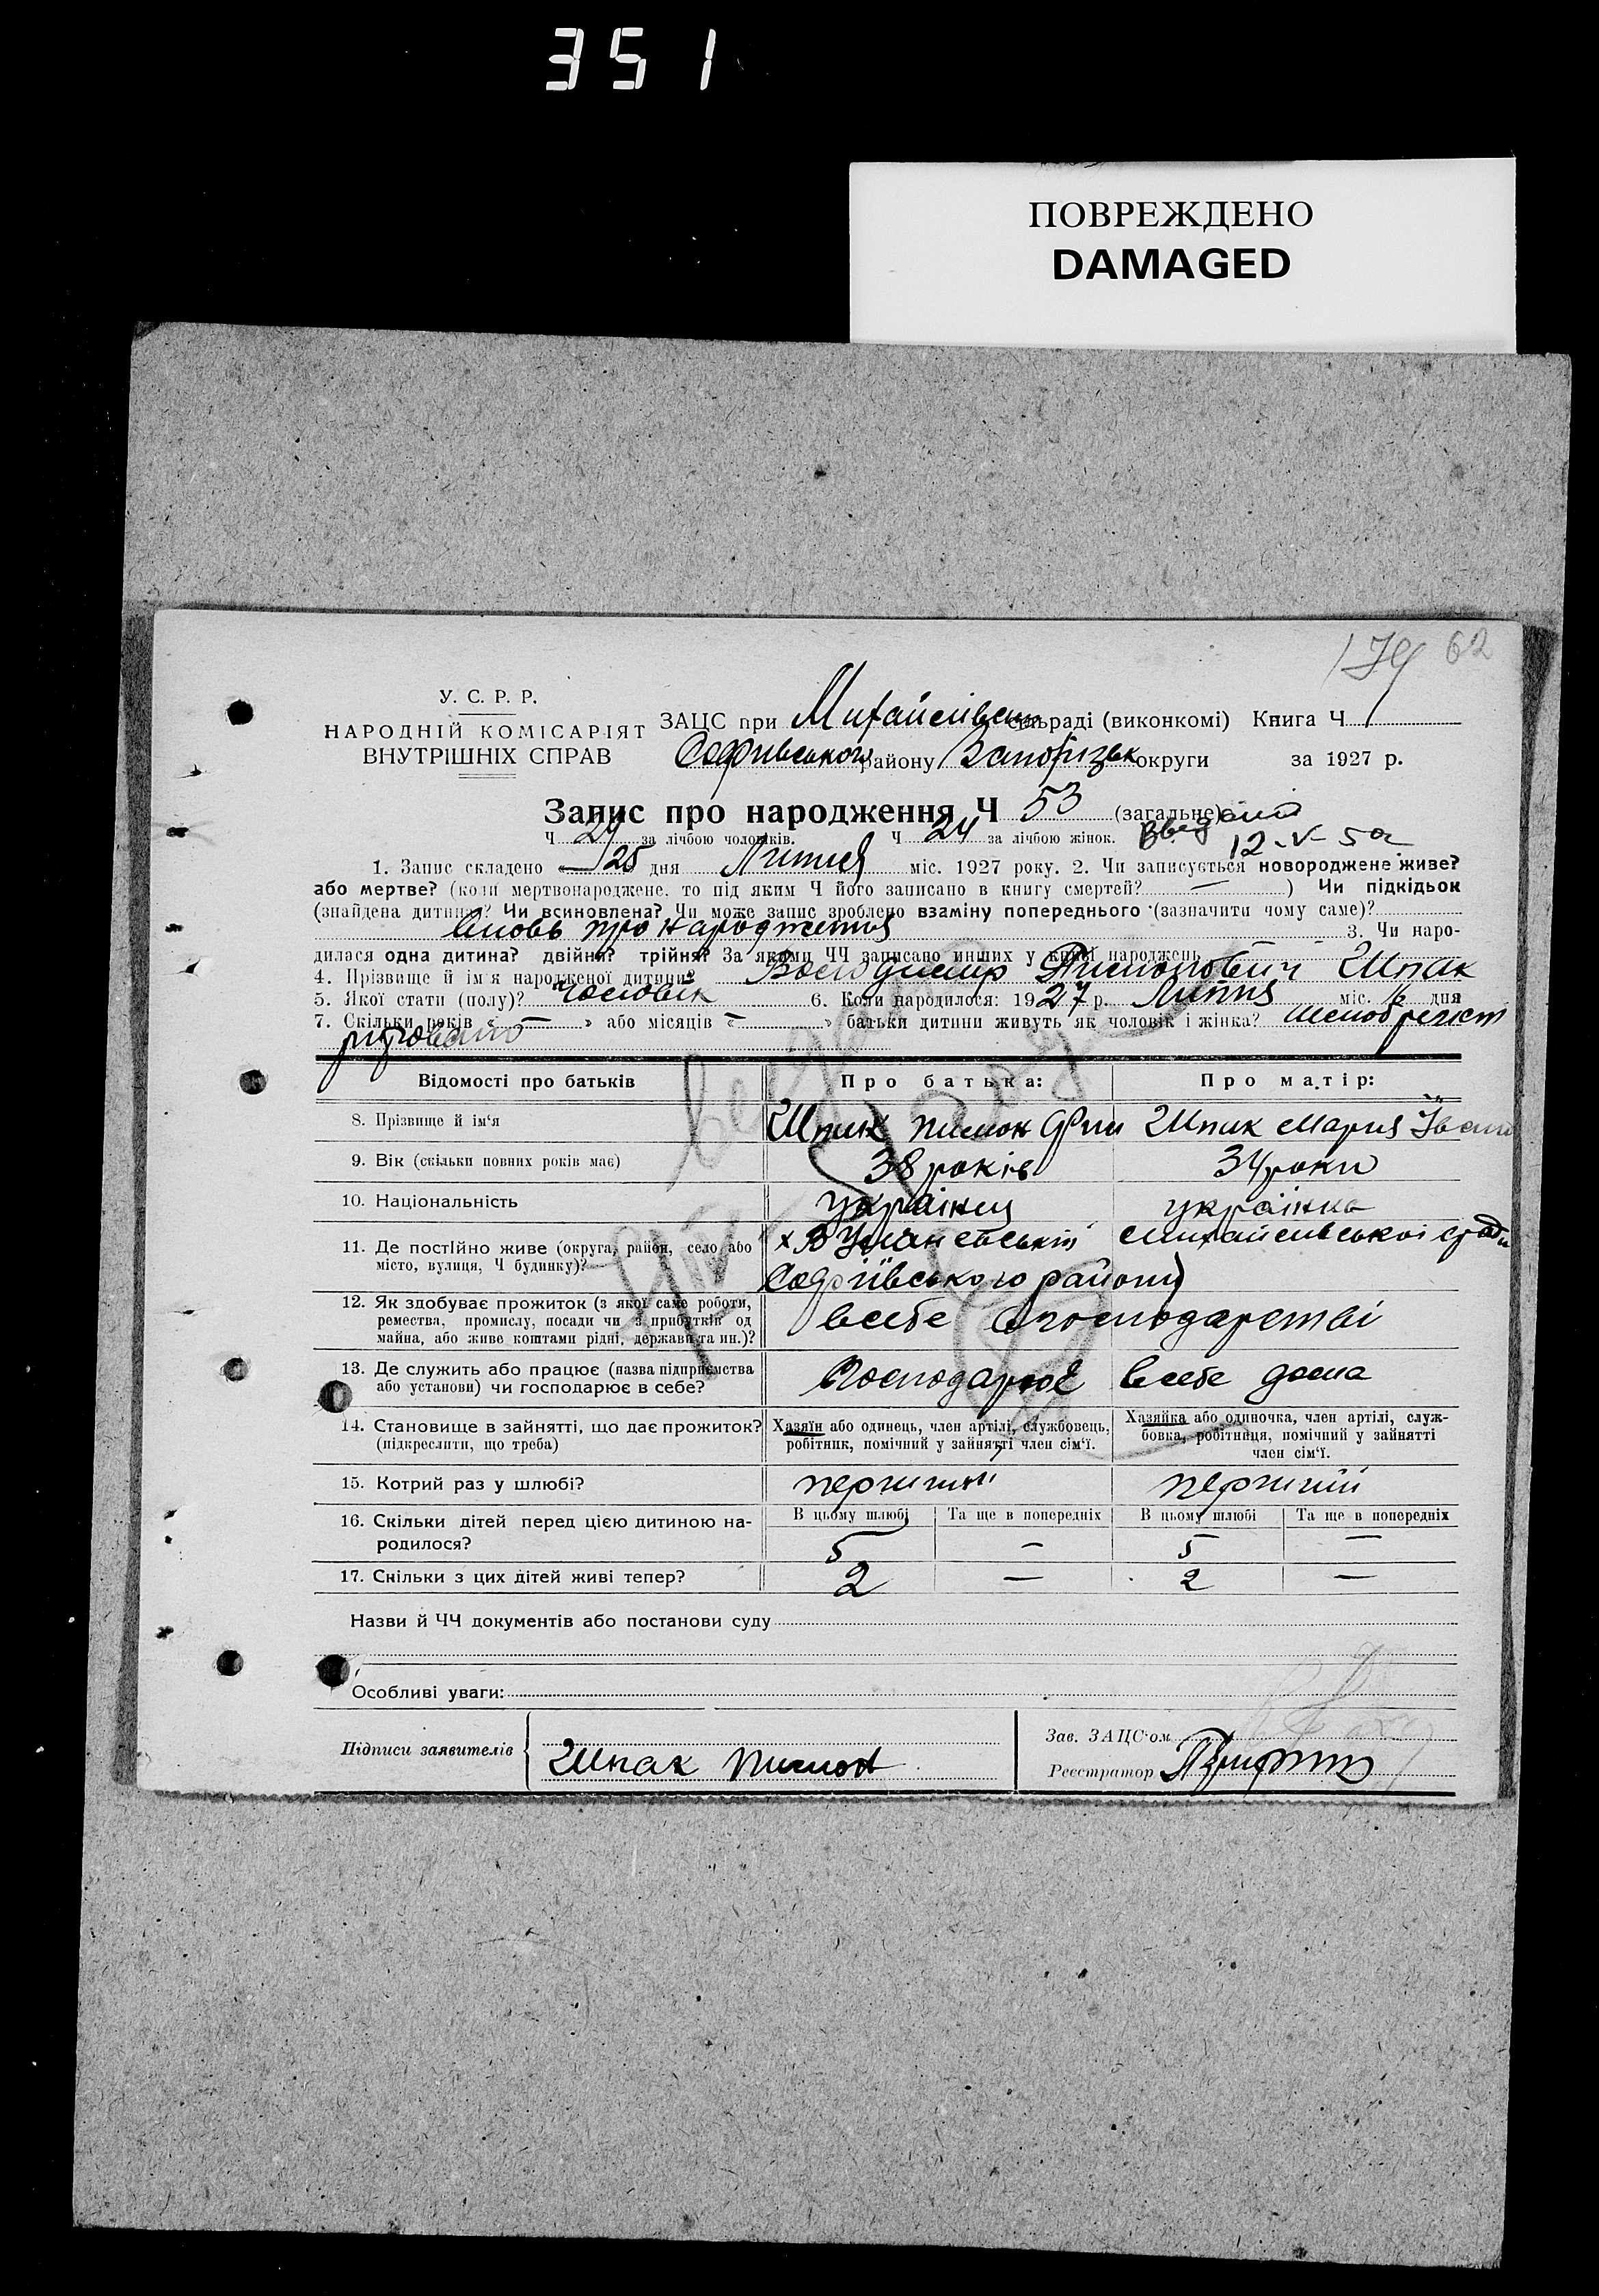 351
ПОВРЕЖДЕНО
DAMAGED
179 62
У. С. Р. Р.
НАРОДНІЙ КОМІСАРІЯТ
ВНУТРІШНІХ СПРАВ
ЗАЦС при Михайлівськ сельраді (виконкомі) Книга Ч 1
Софиівського району Запорізьк округи за 1927 р.
Запис про народження Ч 53 (загальне)
Ч 29 за лічбою чоловіків. Ч 24 за лічбою жінок.
12-V-50
1. Запис складено « 25 дня Липня міс. 1927 року. 2. Чи записується новороджене живе?
або мертве? (коли мертвонароджене, то під яким Ч його записано в книгу смертей? — ) Чи підкідьок
(знайдена дитина)? Чи всиновлена? Чи може запис зроблено взаміну попереднього (зазначити чому саме)?
вновь про народження 3. Чи наро-
дилася одна дитина? двійня? трійня? За якими ЧЧ записано инших у книзі народжень — —
4. Прізвище й ім'я народженої дитини? Володимир Пимонович Шпак
5. Якої стати (полу)? чоловік 6. Коли народилося: 1927 р. Липня міс. 16 дня
7. Скільки років « — » або місяців « — » батьки дитини живуть як чоловік і жінка? шлюб регіст
рировано
Відомості про батьків Про батька: Про матір:
8. Прізвище й ім'я Шпак Пимон Шпак Мария Іван
9. Вік (скільки повних років має) 38 років 34 роки
10. Національність украінец украінка
11. Де постійно живе (округа, район, село або
місто, вулиця, Ч будинку)? Михайлівськоі с/ради
Софіівського району
12. Як здобуває прожиток (з якої саме роботи,
ремества, промислу, посади чи з прибутків од
майна, або живе коштами рідні, держави та ин.)? всебе в господарстві
13. Де служить або працює (назва підприємства
або установи) чи господарює в себе? Господарює всебе дома
14. Становище в зайнятті, що дає прожиток?
(підкреслити, що треба)
Хазяїн або одинець, член артілі, службовець,
робітник, помічний у зайнятті член сім'ї.
Хазяйка або одиночка, член артілі, служ-
бовка, робітниця, помічний у зайнятті
член сім'ї.
15. Котрий раз у шлюбі? перший перший
В цьому шлюбі Та ще в попередніх В цьому шлюбі Та ще в попередніх
16. Скільки дітей перед цією дитиною на-
родилося? 5 — 5 —
17. Скільки з цих дітей живі тепер? 2 — 2 —
Назви й ЧЧ документів або постанови суду
Особливі уваги:
Підписи заявителів Шпак Пимон
Зав. ЗАЦС'ом
Реєстратор